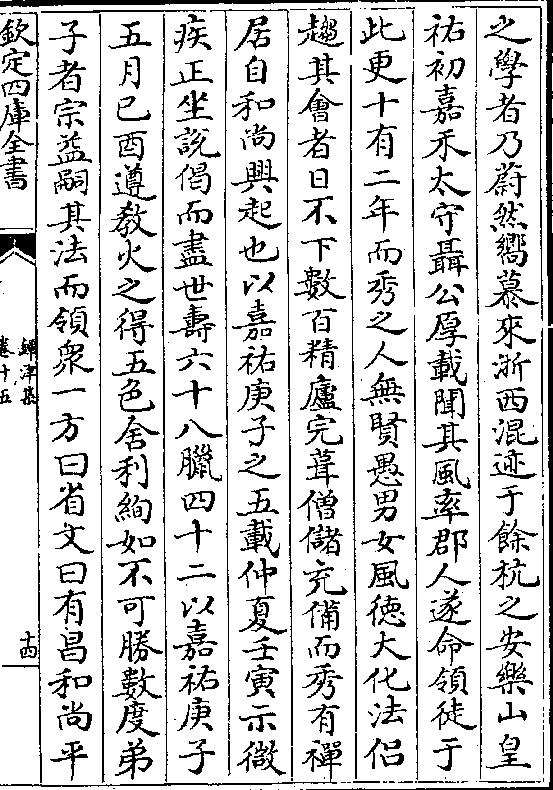 之學者乃蔚然嚮慕來浙西混迹于餘杭之安樂山皇
祐初嘉禾太守聶公厚載聞其風率郡人遂命領徒于
此更十有二年而秀之人無賢愚男女風徳大化法侣
趨其會者日不下數百精廬完葺僧儲充備而秀有禪
居自和尚興起也以嘉祐庚子之五載仲夏壬寅示微
疾正坐說偈而盡世壽六十八臘四十二以嘉祐庚子
五月已酉遵教火之得五色舍利絢如不可勝數度弟
子者宗益嗣其法而領衆一方曰省文曰有昌和尚平
欽定四庫全書
鐔津集
卷十五
十四